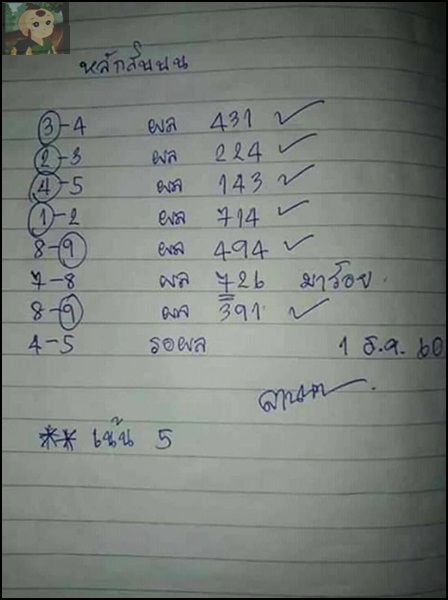 หลักสิบบน
3-4 ผล 431 ✓
2-3 ผล 224 ✓
4-5 ผล 143 ✓
1-2 ผล 714 ✓
8-9 ผล 494 ✓
7-8 ผล 726 มาร้อย
8-9 ผล 391 ✓
4-5 รอผล 1 ธ.ค. 60
** เน้น 5